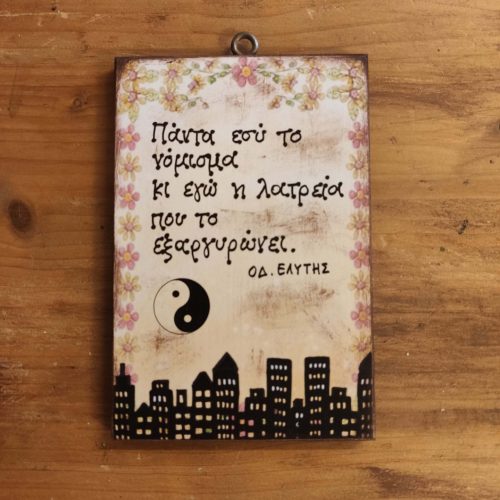 Πάντα εσύ το
νόμισμα
κι εγώ η λατρεία
που το
εξαργυρώνει.
ΟΔ. ΕΛΥΤΗΣ